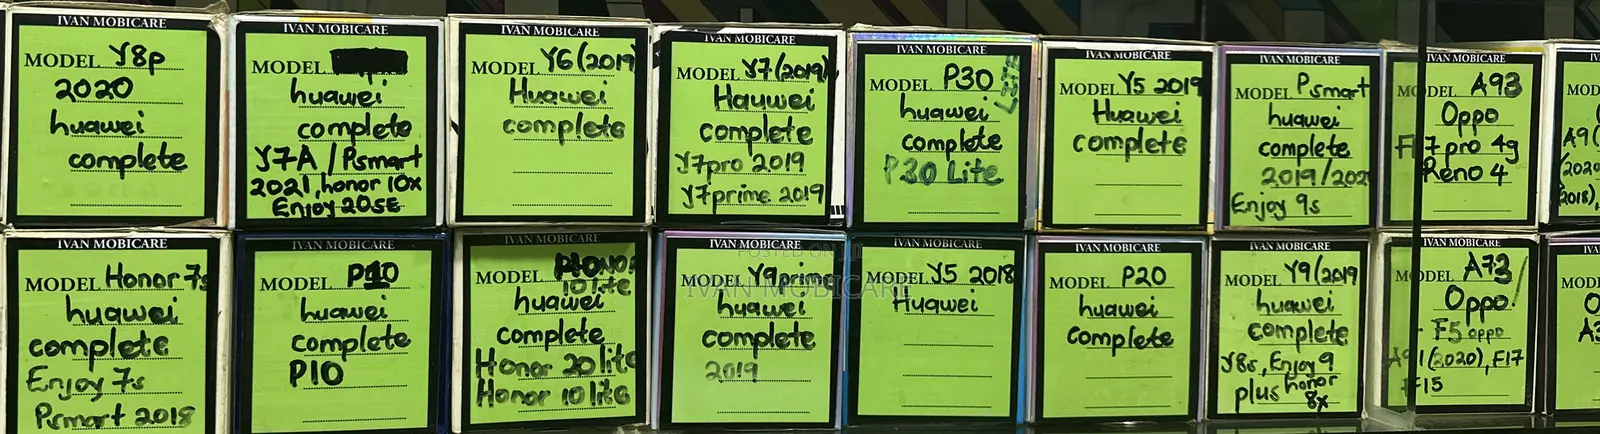 IVAN MOBICARE
MODEL Y8p
2020
huawei
complete
IVAN MOBICARE
MODEL
huawei
complete
Y7A / Psmart
2021, honor 10x
Enjoy 20SE
IVAN MOBICARE
MODEL Y6 (2019
Huawei
complete
IVAN MOBICARE
MODEL Y7 (2019)
Hauwei
complete
Y7pro 2019
Y7prime 2019
IVAN MOBICARE
MODEL P30 Lite
huawei
complete
P30 Lite
IVAN MOBICARE
MODEL Y5 2019
Huawei
complete
IVAN MOBICARE
MODEL Psmart
huawei
complete
2019/202
Enjoy 9s
IVAN MOBICARE
MODEL A93
Oppo
7pro 4g
Reno 4
IVAN
MOD
A9(
2020
2018),
IVAN MOBICARE
MODEL Honor 7s
huawei
complete
Enjoy 7s
Psmart 2018
IVAN MOBICARE
MODEL P10
huawei
complete
P10
IVAN MOBICARE
MODEL
10 lite
huawei
complete
Honor 20 lite
Honor 10 lite
IVAN MOBICARE
MODEL Y9 prime
huawei
complete
2019
IVAN MOBICARE
MODEL Y5 2018
Huawei
IVAN MOBICARE
MODEL P20
huawei
complete
IVAN MOBICARE
MODEL Y9 (2019
huawei
complete
Y8s, Enjoy 9
plus honor
8x
IVAN MOBICARE
MODEL A73
Oppo
F5 oppo
1 (2020), F17
F15
MOD
POSTED ON JIJI
IVAN MOBICARE